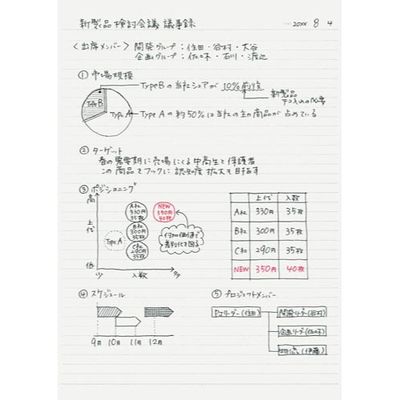 新製品検討会議 議事録
20XX 8 4
〈出席メンバー〉 開発グループ：住田・谷村・大谷
企画グループ：佐々木・石川・渡辺
① 市場規模
Type B の当社シェアが10%前後
新製品
Type B
Type A
Type A の約50%は当社の主力商品が占めている
② ターゲット
春の需要期に売場にくる中高生と保護者
この商品をフックに認知度拡大も目指す
③ ポジショニング
高
上代
低
少
入数
多
Type A
A社 330円 35枚
B社 300円 35枚
C社 290円 35枚
NEW 350円 40枚
上代 入数
A社 330円 35枚
B社 300円 35枚
C社 290円 35枚
NEW 350円 40枚
④ スケジュール
9月 10月 11月 12月
⑤ プロジェクトメンバー
PJリーダー(住田)
開発リーダー(谷村)
企画リーダー(佐々木)
物流(伊藤)